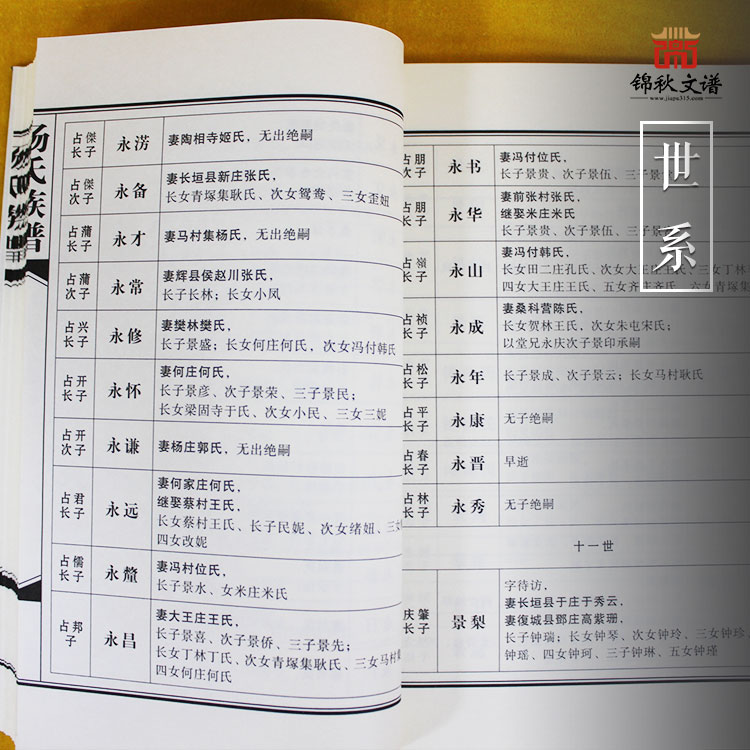 锦秋文谱
www.jiapu315.com
世系
杨氏族谱
占傑长子 永涝 妻陶相寺姬氏，无出绝嗣
占傑次子 永备 妻长垣县新庄张氏，
长女青塚集耿氏、次女鸳鸯、三女歪妞
占蒲长子 永才 妻马村集杨氏，无出绝嗣
占蒲次子 永常 妻辉县侯赵川张氏，
长子长林；长女小凤
占兴长子 永修 妻樊林樊氏，
长子景盛；长女何庄何氏，次女冯付韩氏
占开长子 永怀 妻何庄何氏，
长子景彦、次子景荣、三子景民；
长女梁固寺于氏、次女小民、三女三妮
占开次子 永谦 妻杨庄郭氏，无出绝嗣
占君长子 永远 妻何家庄何氏，
继娶蔡村王氏，
长女蔡村王氏、长子民妮、次女绪妞、三女
四女改妮
占儒长子 永釐 妻冯村位氏，
长子景水、女米庄米氏
占邦子 永昌 妻大王庄王氏，
长子景喜、次子景侨、三子景先；
长女丁林丁氏、次女青塚集耿氏、三女马村
四女何庄何氏
占朋长子 永书 妻冯付位氏，
长子景贵、次子景伍、三子景
占朋次子 永华 妻前张村张氏，
继娶米庄米氏
长子景贵、次子景伍、三子景
占嶺子 永山 妻冯付韩氏，
长女田二庄孔氏、次女大王庄王氏、三女丁林
四女大王庄王氏、五女齐庄齐氏、六女
占祯长子 永成 妻桑科营陈氏，
长女贺林王氏，次女朱屯宋氏；
以堂兄永庆次子景印承嗣
占松长子 永年 长子景成、次子景云；长女马村耿氏
占平长子 永康 无子绝嗣
占春长子 永晋 早逝
占林长子 永秀 无子绝嗣
十一世
庆肇长子 景梨 字待访，
妻长垣县于庄于秀云，
妻復城县鄧庄高紫珊，
长子钟瑞；长女钟琴、次女钟玲、三女钟
钟瑶、四女钟珂、三子钟琳、五女钟瑾